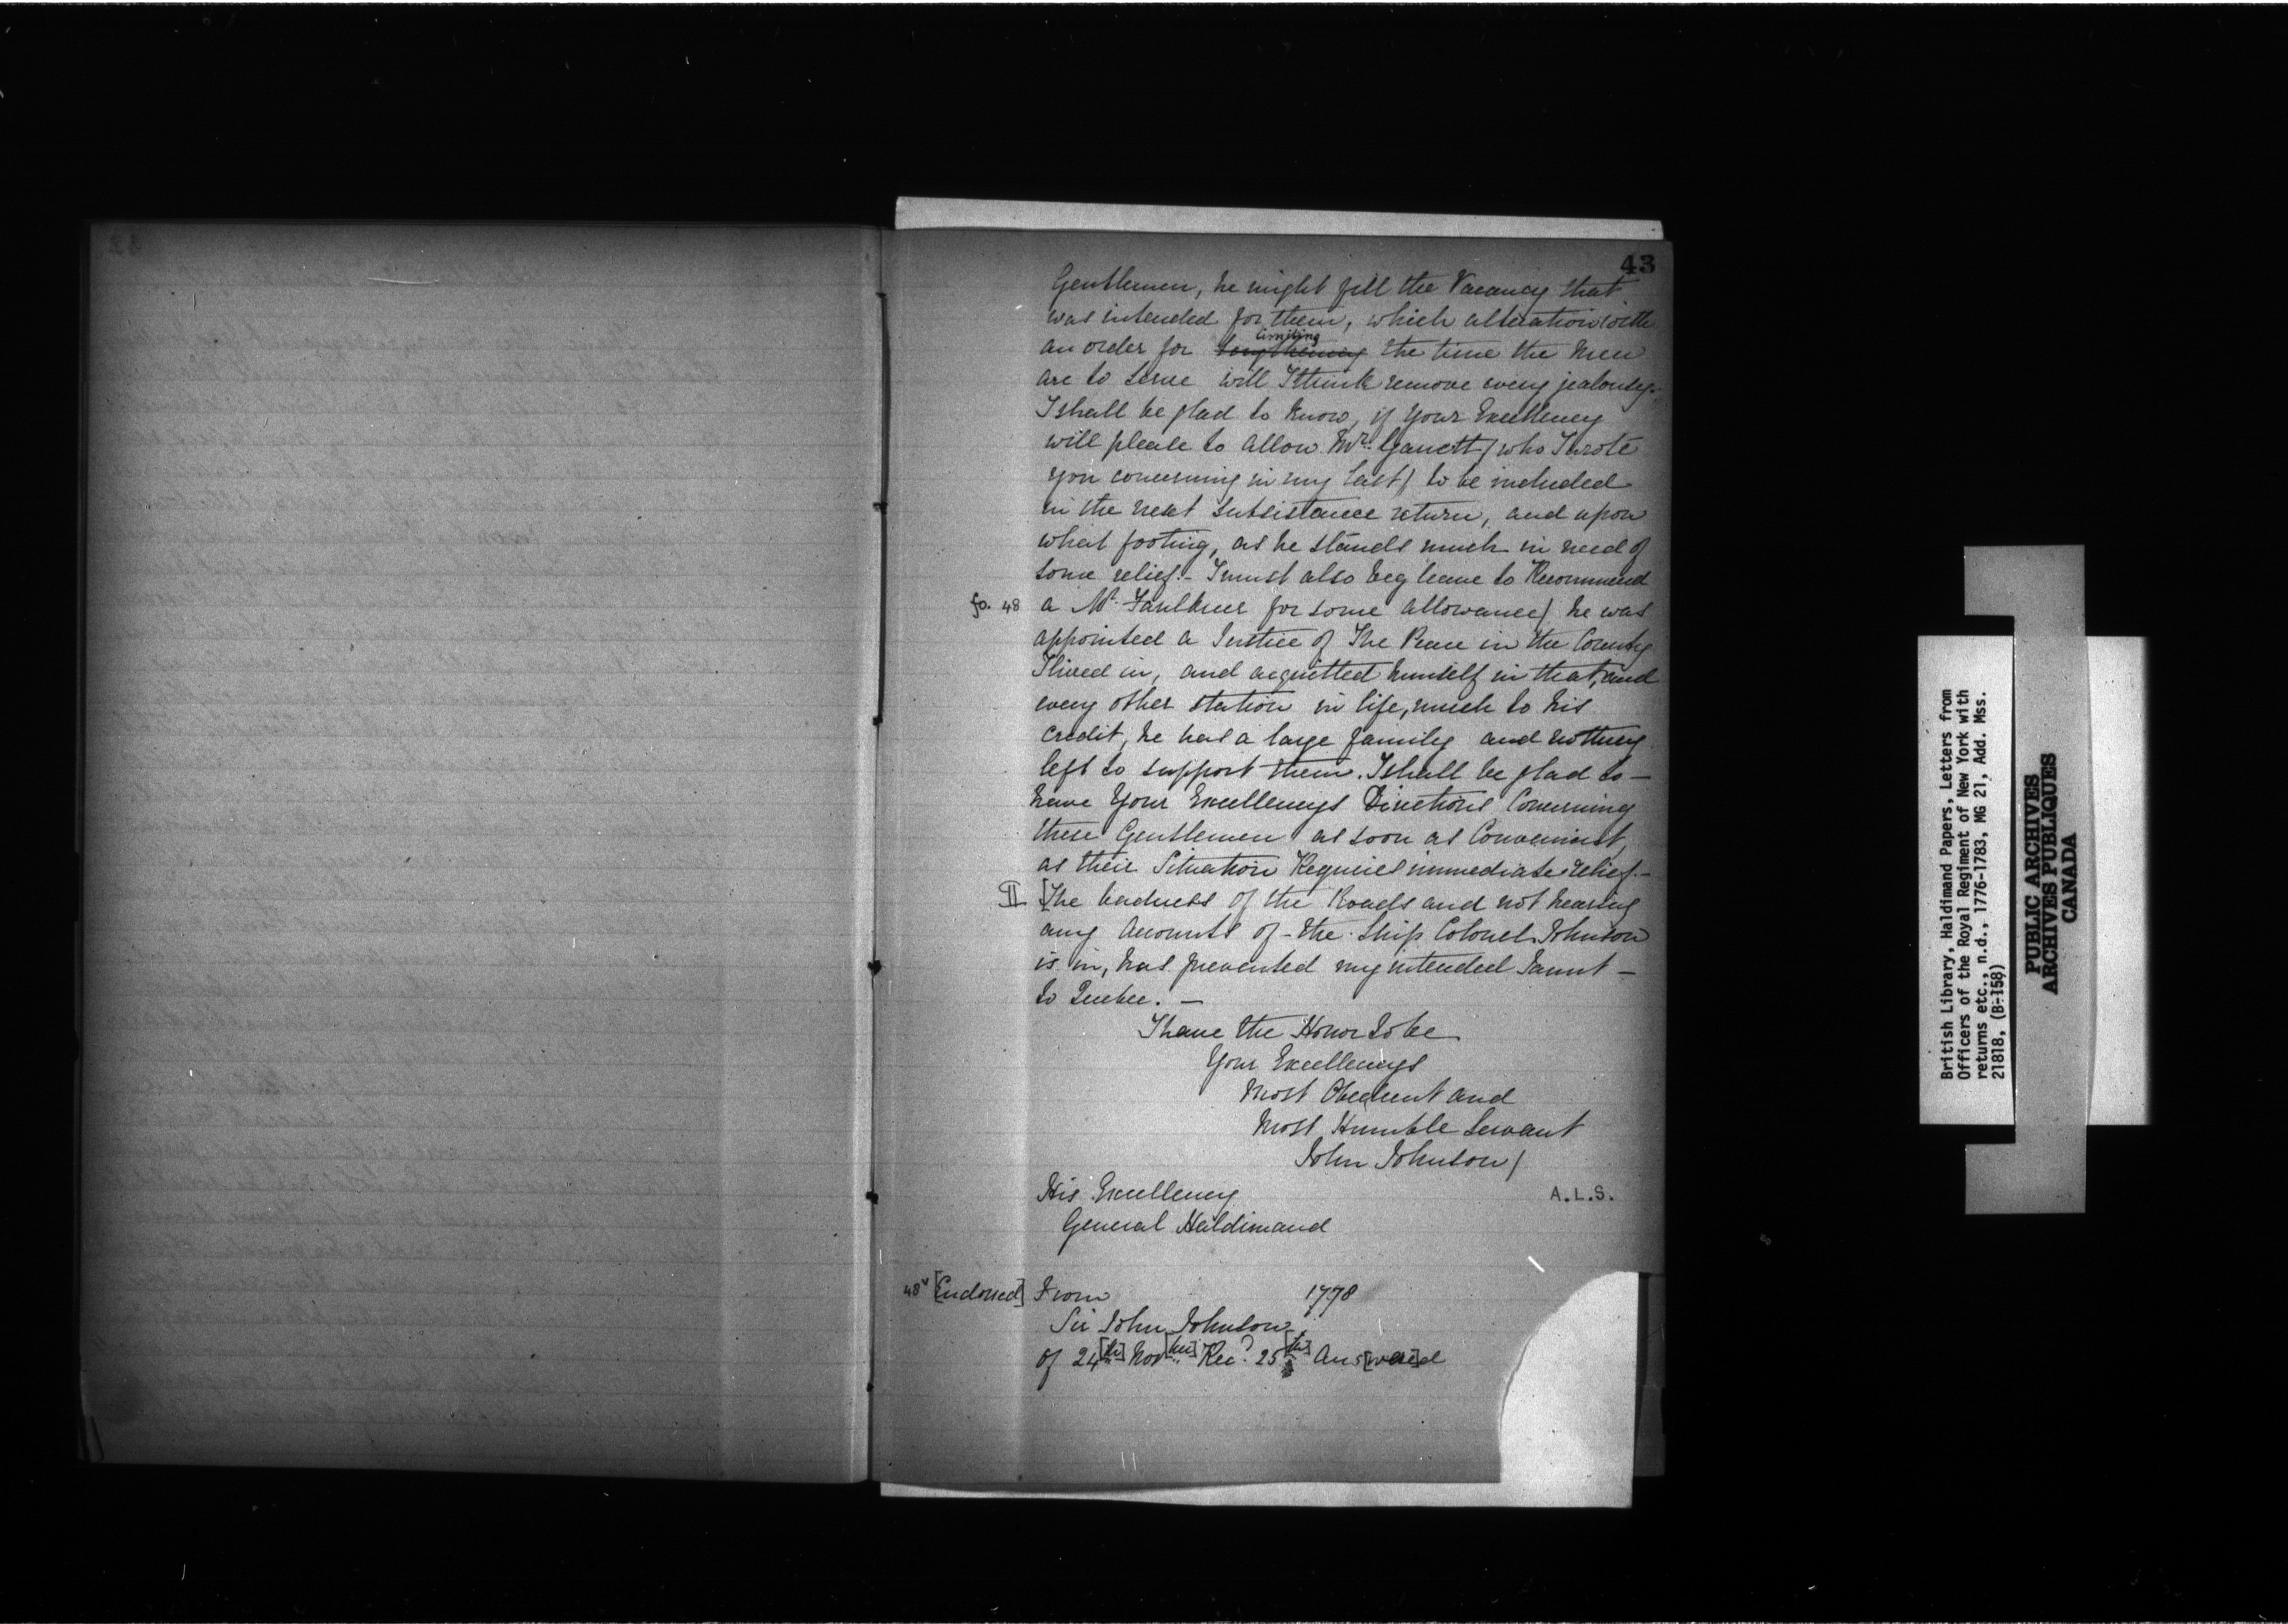 43
Gentlemen, he might fill the Vacancy that
was intended for them, which alteration with
limiting
an order for lengthening the time the Men
are to serve will I think remove every jealousy.
I shall be glad to know, if Your Excellency
will please to allow Mr. Garrett / who I wrote
you concerning in my last / to be included
in the next Subsistance return, and upon
what footing, as he stands much in need of
some relief. - I must also beg leave to Recommend
fo. 48 a Mr. Faulkner for some allowance / he was
appointed a Justice of The Peace in the County
I lived in, and acquitted himself in that, and
every other station in life, much to his
Credit, he has a large family and nothing
left to support them. I shall be glad to —
have Your Excellencys Directions Concerning
these Gentlemen as soon as Convenient,
as their Situation Requires immediate relief. -
II [The badness of the Roads and not hearing
any Accounts of the Ship Colonel Johnson
is in, has prevented my intended Jaunt —
to Quebec. —
I have the Honor to be
Your Excellencys
Most Obedient and
Most Humble Servant
John Johnson /
His Excellency
A.L.S.
General Haldimand
48v [Endorsed] From 1778
Sir John Johnson
of 24[th] Nov[ber] Rec'd 25[th] Ans[were]d
British Library, Haldimand Papers, Letters from
Officers of the Royal Regiment of New York with
returns etc., n.d., 1776-1783, MG 21, Add. Mss.
21818, (B-158)
PUBLIC ARCHIVES
ARCHIVES PUBLIQUES
CANADA